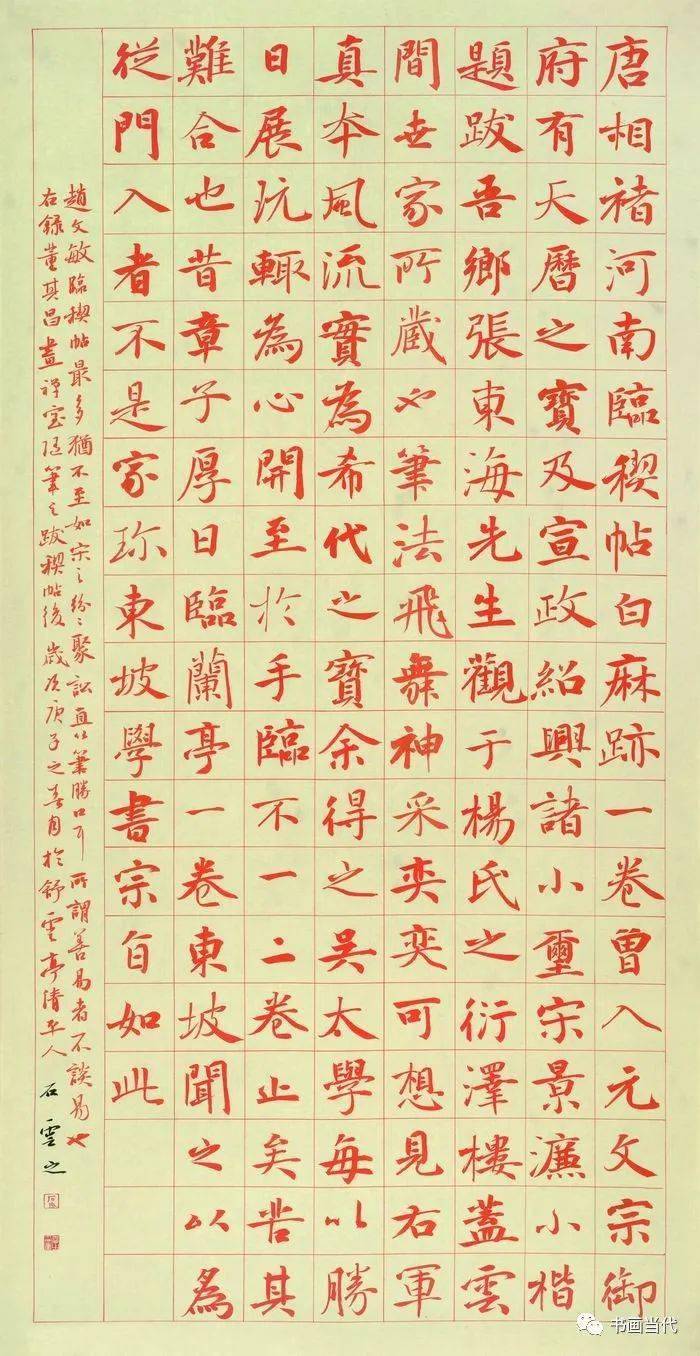 唐相褚河南臨稧帖白麻跡一卷曾入元文宗御
府有天曆之寶及宣政紹興諸小璽宋景濂小楷
題跋吾鄉張東海先生觀于楊氏之衍澤樓蓋雲
間世家所藏也筆法飛舞神采奕奕可想見右軍
真本風流實為希代之寶余得之吳太學每以勝
日展玩輙為心開至於手臨不一二卷止矣苦其
難合也昔章子厚日臨蘭亭一卷東坡聞之以為
從門入者不是家珎東坡學書宗旨如此
趙文敏臨稧帖最多猶不至如宋之紛〻聚訟直以筆勝口耳所謂善易者不談易也
右錄董其昌畫禪室隨筆之跋稧帖後歲次庚子之春月於舒雲亭清平人石雲之
书画当代